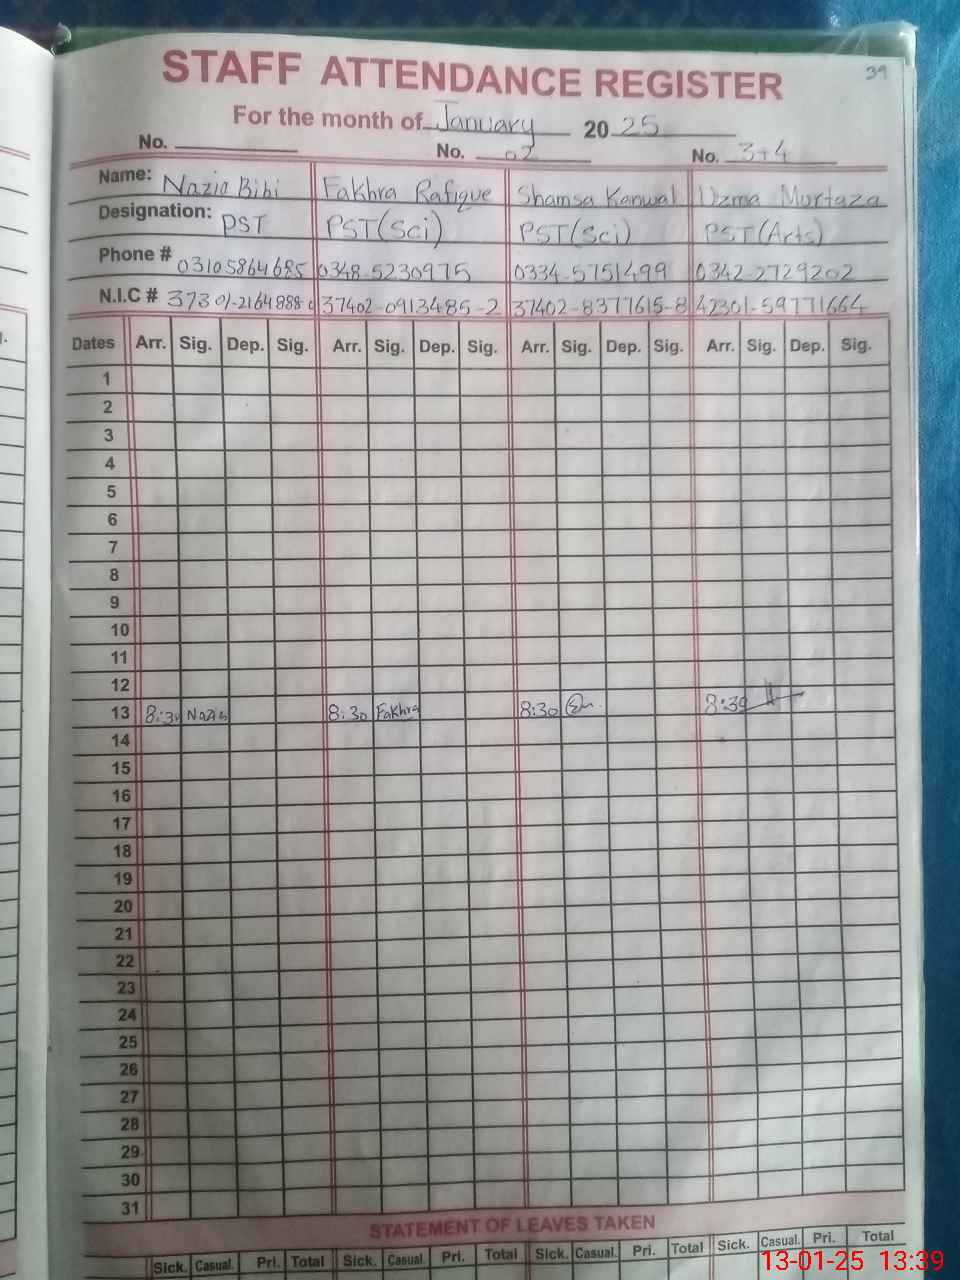 39
STAFF ATTENDANCE REGISTER
For the month of January 2025
No. No. 02 No. 3+4
Name: Nazia Bibi Fakhra Rafique Shamsa Kanwal Uzma Murtaza
Designation: PST PST(Sci) PST(Sci) PST(Arts)
Phone # 03105864685 0348-5230975 0334-5751499 0342-2729202
N.I.C # 37301-2164888 37402-0913485-2 37402-8377615-8 42301-59771664
Dates Arr. Sig. Dep. Sig. Arr. Sig. Dep. Sig. Arr. Sig. Dep. Sig. Arr. Sig. Dep. Sig.
1
2
3
4
5
6
7
8
9
10
11
12
13 8:30 Nazia 8:30 Fakhra 8:30 8:30
14
15
16
17
18
19
20
21
22
23
24
25
26
27
28
29
30
31
STATEMENT OF LEAVES TAKEN
Sick. Casual. Pri. Total Sick. Casual. Pri. Total Sick. Casual. Pri. Total Sick. Casual. Pri. Total
13-01-25 13:39